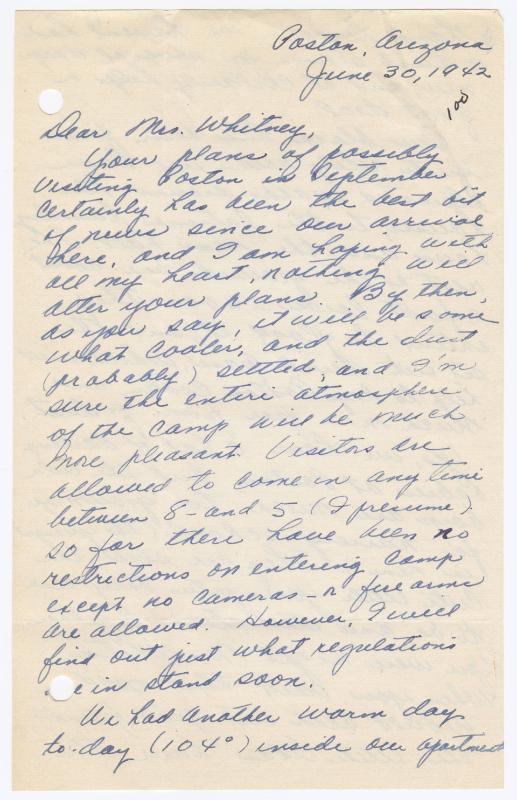 Poston, Arizona
June 30, 1942
100
Dear Mrs. Whitney,
Your plans of possibly
visiting Poston in September
certainly has been the best bit
of news since our arrival
here, and I am hoping with
all my heart, nothing will
alter your plans. By then,
as you say, it will be some
what cooler, and the dust
(probably) settled, and I'm
sure the entire atmosphere
of the camp will be much
more pleasant. Visitors are
allowed to come in any time
between 8 - and 5 (I presume).
so far there have been no
restrictions on entering camp
except no cameras - n fire arms
are allowed. However, I will
find out just what regulations
in stand soon.
We had another warm day
to-day (104°) inside our apartment